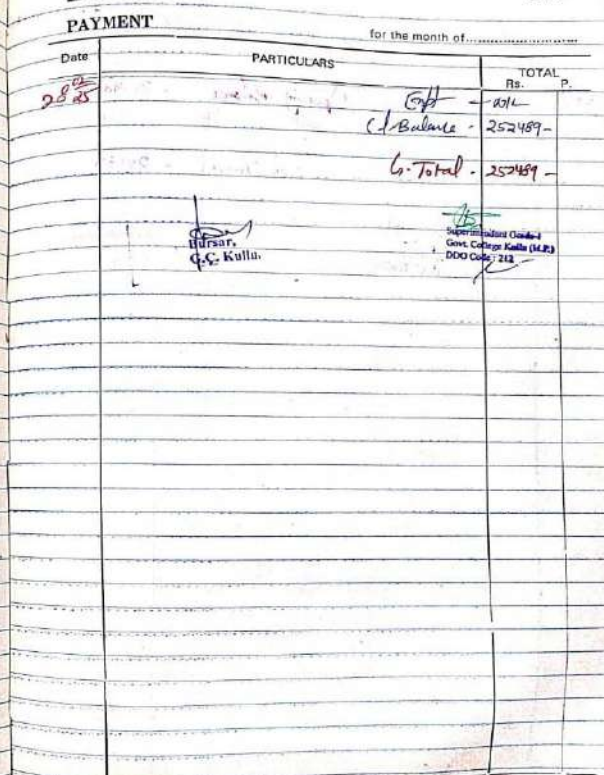 PAYMENT
for the month of..............................
Date PARTICULARS TOTAL
Rs. P.
28 02/25 Expt - Nil
Cl Balance - 252489-
G. Total - 252489 -
Bursar,
G.C. Kullu.
Superintendent Grade-I
Govt. College Kullu (H.P.)
DDO Code : 212